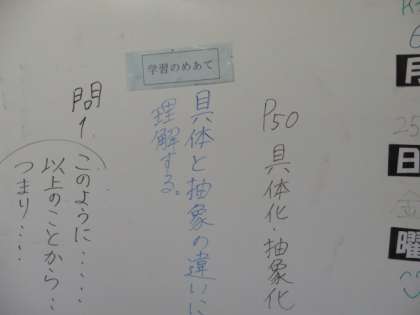 P50 具体化・抽象化
学習のめあて
具体と抽象の違いに
理解する。
問1
このように・・・・・
以上のことから・・
つまり・・・・
月
日
曜